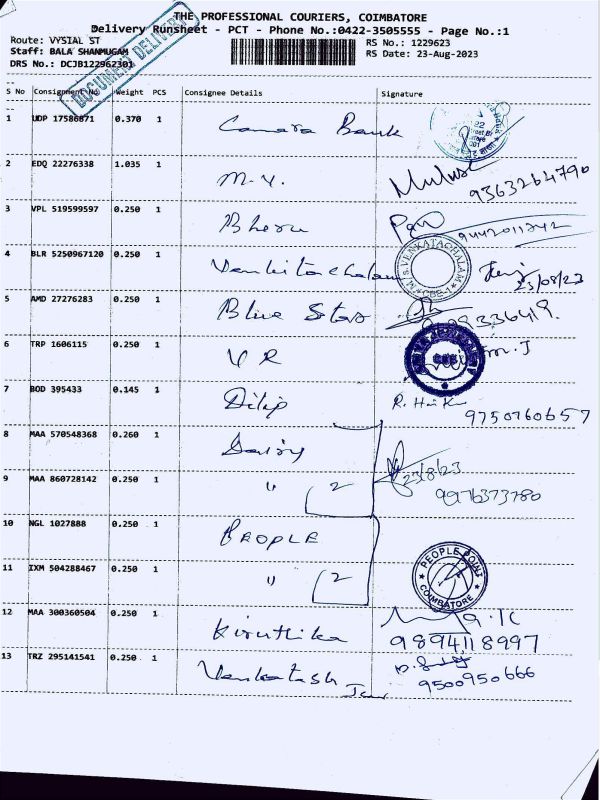 THE PROFESSIONAL COURIERS, COIMBATORE
Delivery Runsheet - PCT - Phone No.:0422-3505555 - Page No.:1
Route: VYSIAL ST
Staff: BALA SHANMUGAM
DRS No.: DCJB122962301
RS No.: 1229623
RS Date: 23-Aug-2023
DOCUMENT DELIVERY
S No Consignment No Weight PCS Consignee Details Signature
1 UDP 17586871 0.370 1 Canara Bank
2 EDQ 22276338 1.035 1 M.Y.
9363264790
3 VPL 519599597 0.250 1 Bheru
9442011242
4 BLR 5250967120 0.250 1 Venkitachalam
M/S.VENKATACHALAM
CBE-1
23/08/23
5 AMD 27276283 0.250 1 Blue Star
6 TRP 1606115 0.250 1 V R
CBE
M.J
7 BOD 395433 0.145 1 Dilip
9750760657
8 MAA 570548368 0.260 1
23/8/23
9 MAA 860728142 0.250 1 " 2
9976373780
10 NGL 1027888 0.250 1 PEOPLE
11 IXM 504288467 0.250 1 " 2
PEOPLE POINT
COIMBATORE
12 MAA 300360504 0.250 1 Kiruthika
9894118997
13 TRZ 295141541 0.250 1 Venkatash
9500950666